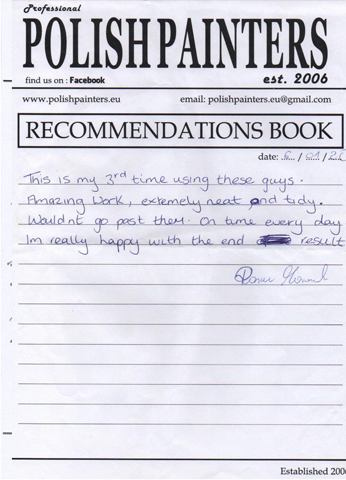 Professional
POLISH PAINTERS
find us on : Facebook
est. 2006
www.polishpainters.eu
email: polishpainters.eu@gmail.com
RECOMMENDATIONS BOOK
date:
This is my 3rd time using these guys.
Amazing Work, extremely neat and tidy.
Wouldnt go past them. On time every day
Im really happy with the end result
Established 2006